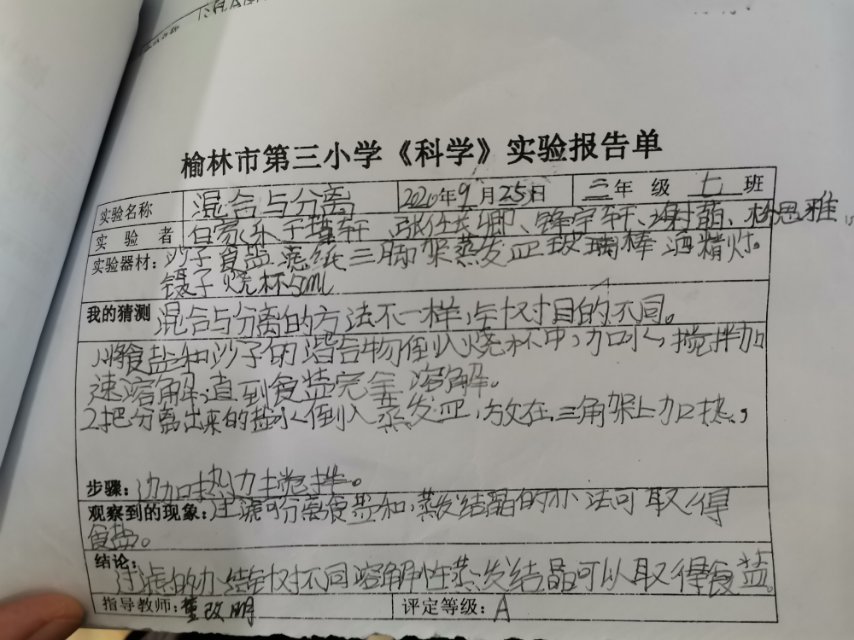 榆林市第三小学《科学》实验报告单
实验名称 混合与分离 2020年9月25日 三年级七班
实验者
实验器材: 沙子 食盐 三脚架 蒸发皿 玻璃棒 酒精灯。
镊子 烧杯 5ml
我的猜测 混合与分离的方法不一样,针对目的不同。
1.将食盐和沙子的混合物倒入烧杯中,加水,搅拌加
速溶解,直到食盐完全溶解。
2.把分离出来的盐水倒入蒸发皿,放在三角架上加热,
步骤: 边加热边搅拌。
观察到的现象: 过滤可分离食盐和,蒸发结晶的办法可取得
食盐。
结论:
过滤的办法针对不同溶解性蒸发结晶可以取得食盐。
指导教师: 评定等级: A